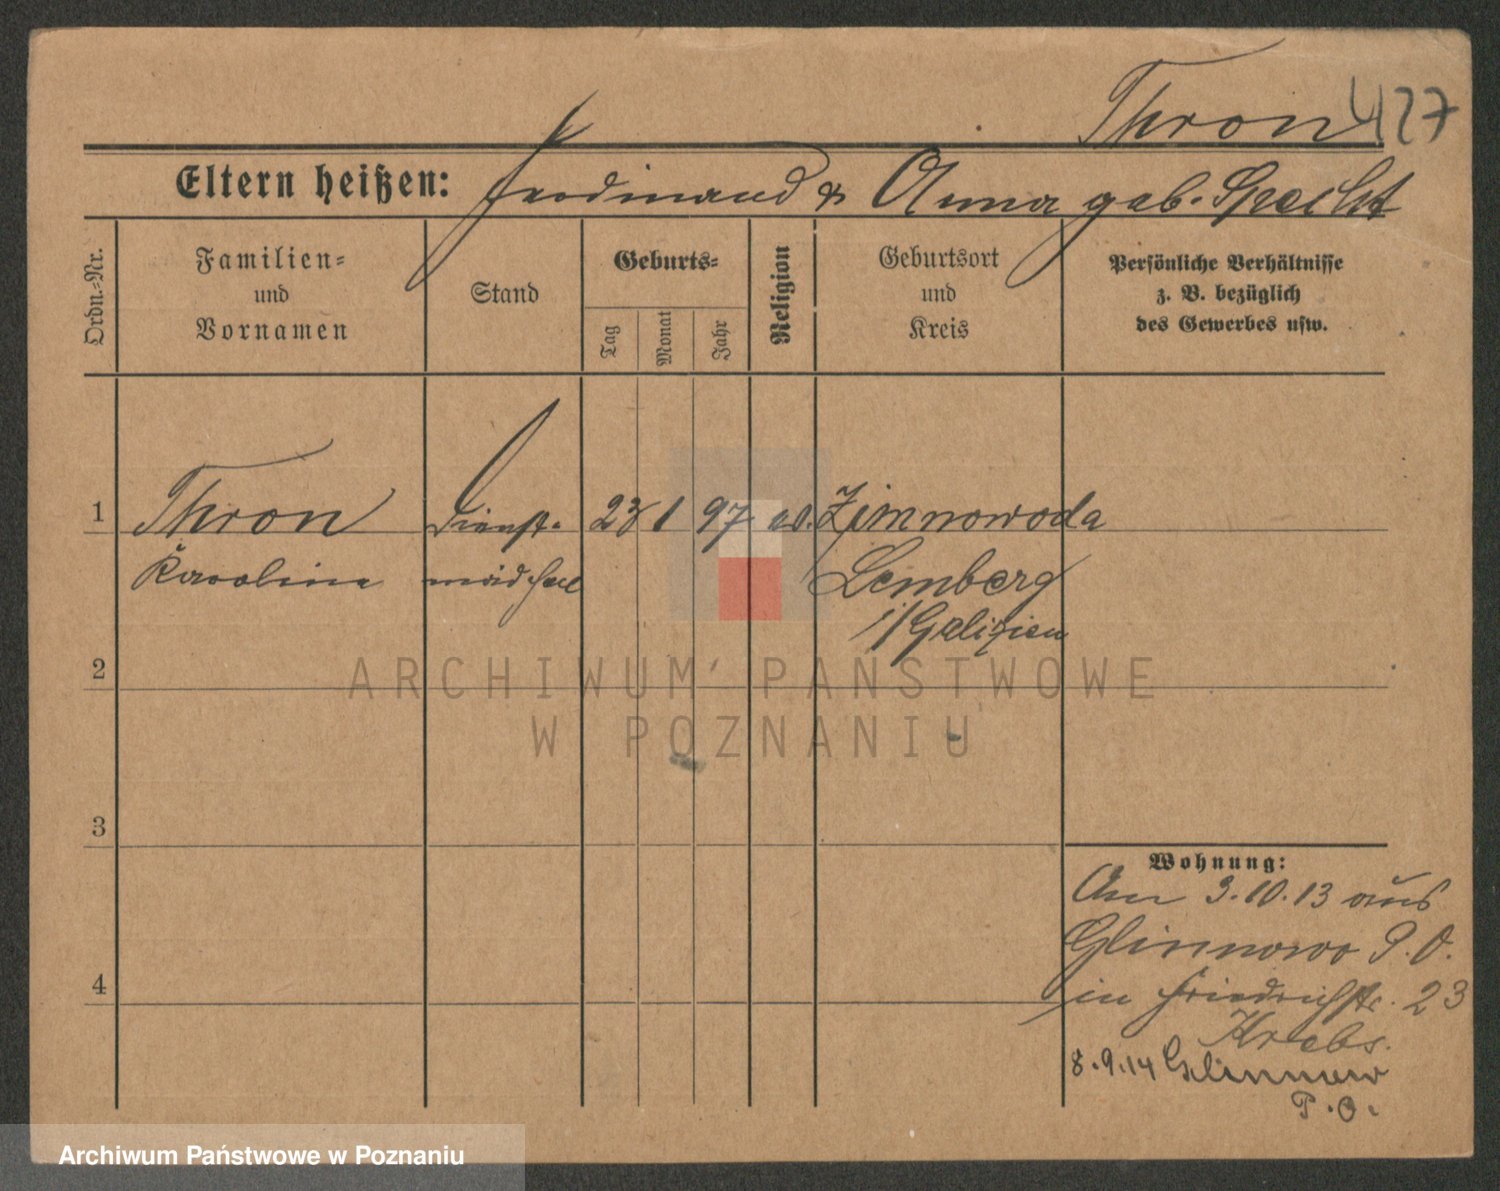 Thron 427
Eltern heißen: Ferdinand & Anna geb. Specht
Ordn.-Nr.
Familien-
und
Vornamen
Stand
Geburts-
Tag
Monat
Jahr
Religion
Geburtsort
und
Kreis
Persönliche Verhältnisse
z. B. bezüglich
des Gewerbes usw.
1 Thron Dienst- 23 1 97 ev. Zimnowoda
Karoline mädchen Lemberg
i/Galizien
2
3
4
Wohnung:
Am 3.10.13 aus
Glinnowo P. O.
in Friedrichstr. 23
Krebs.
8.9.14 Glinnow
P. O.
ARCHIWUM PAŃSTWOWE
W POZNANIU
Archiwum Państwowe w Poznaniu